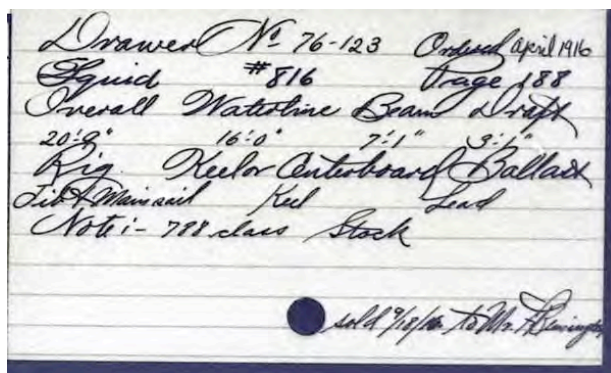 Drawer No 76-123 Ordered April 1916
Squid #816 Page 188
Overall Waterline Beam Draft
20'-9" 16'-0" 7'-1" 3'-1"
Rig. Keel or Centerboard Ballast
Jib & Mainsail Keel Lead
Note:- 788 class Stock
sold 9/18/16 to Mr.